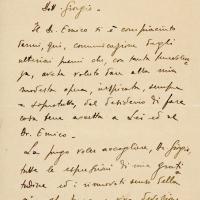 Dott. Giorgio –
Il Dr. Enrico si è compiaciuto
farmi, qui, comunicazione degli
ulteriori premi che, con tanta
ha, avete voluto dare alla mia
modesta opera, inspirata, sempre
e soprattutto, dal desiderio di fare
cosa bene accetta a Lei ed al
Dr. Enrico. –
La prego voler accogliere, Dr. Giorgio,
tutte le espressioni di mia grati
tudine ed i rinnovati sensi della